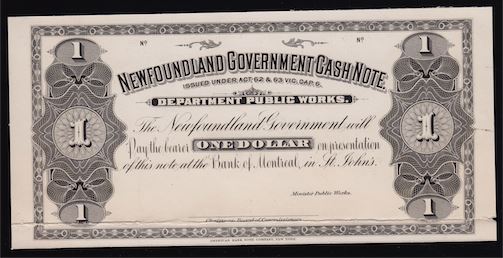 1 Nº Nº 1
NEWFOUNDLAND GOVERNMENT CASH NOTE.
ISSUED UNDER ACT 62 & 63 VIC. CAP. 6.
DEPARTMENT PUBLIC WORKS.
The Newfoundland Government will
1 Pay the bearer ONE DOLLAR on presentation 1
of this note at the Bank of Montreal, in St. John's.
Minister Public Works.
1 1
Chairman Board of Commissioners
AMERICAN BANK NOTE COMPANY, NEW YORK.